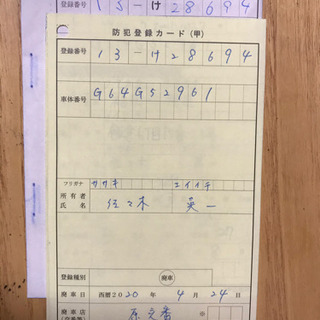 登録番号 13-け28694
防犯登録カード(甲)
登録番号 13-け28694
車体番号 G64G52961
フリガナ ササキ エイイチ
所有者氏名 佐々木 英一
登録種別 廃車
廃車日 西暦2020年4月24日
廃車店